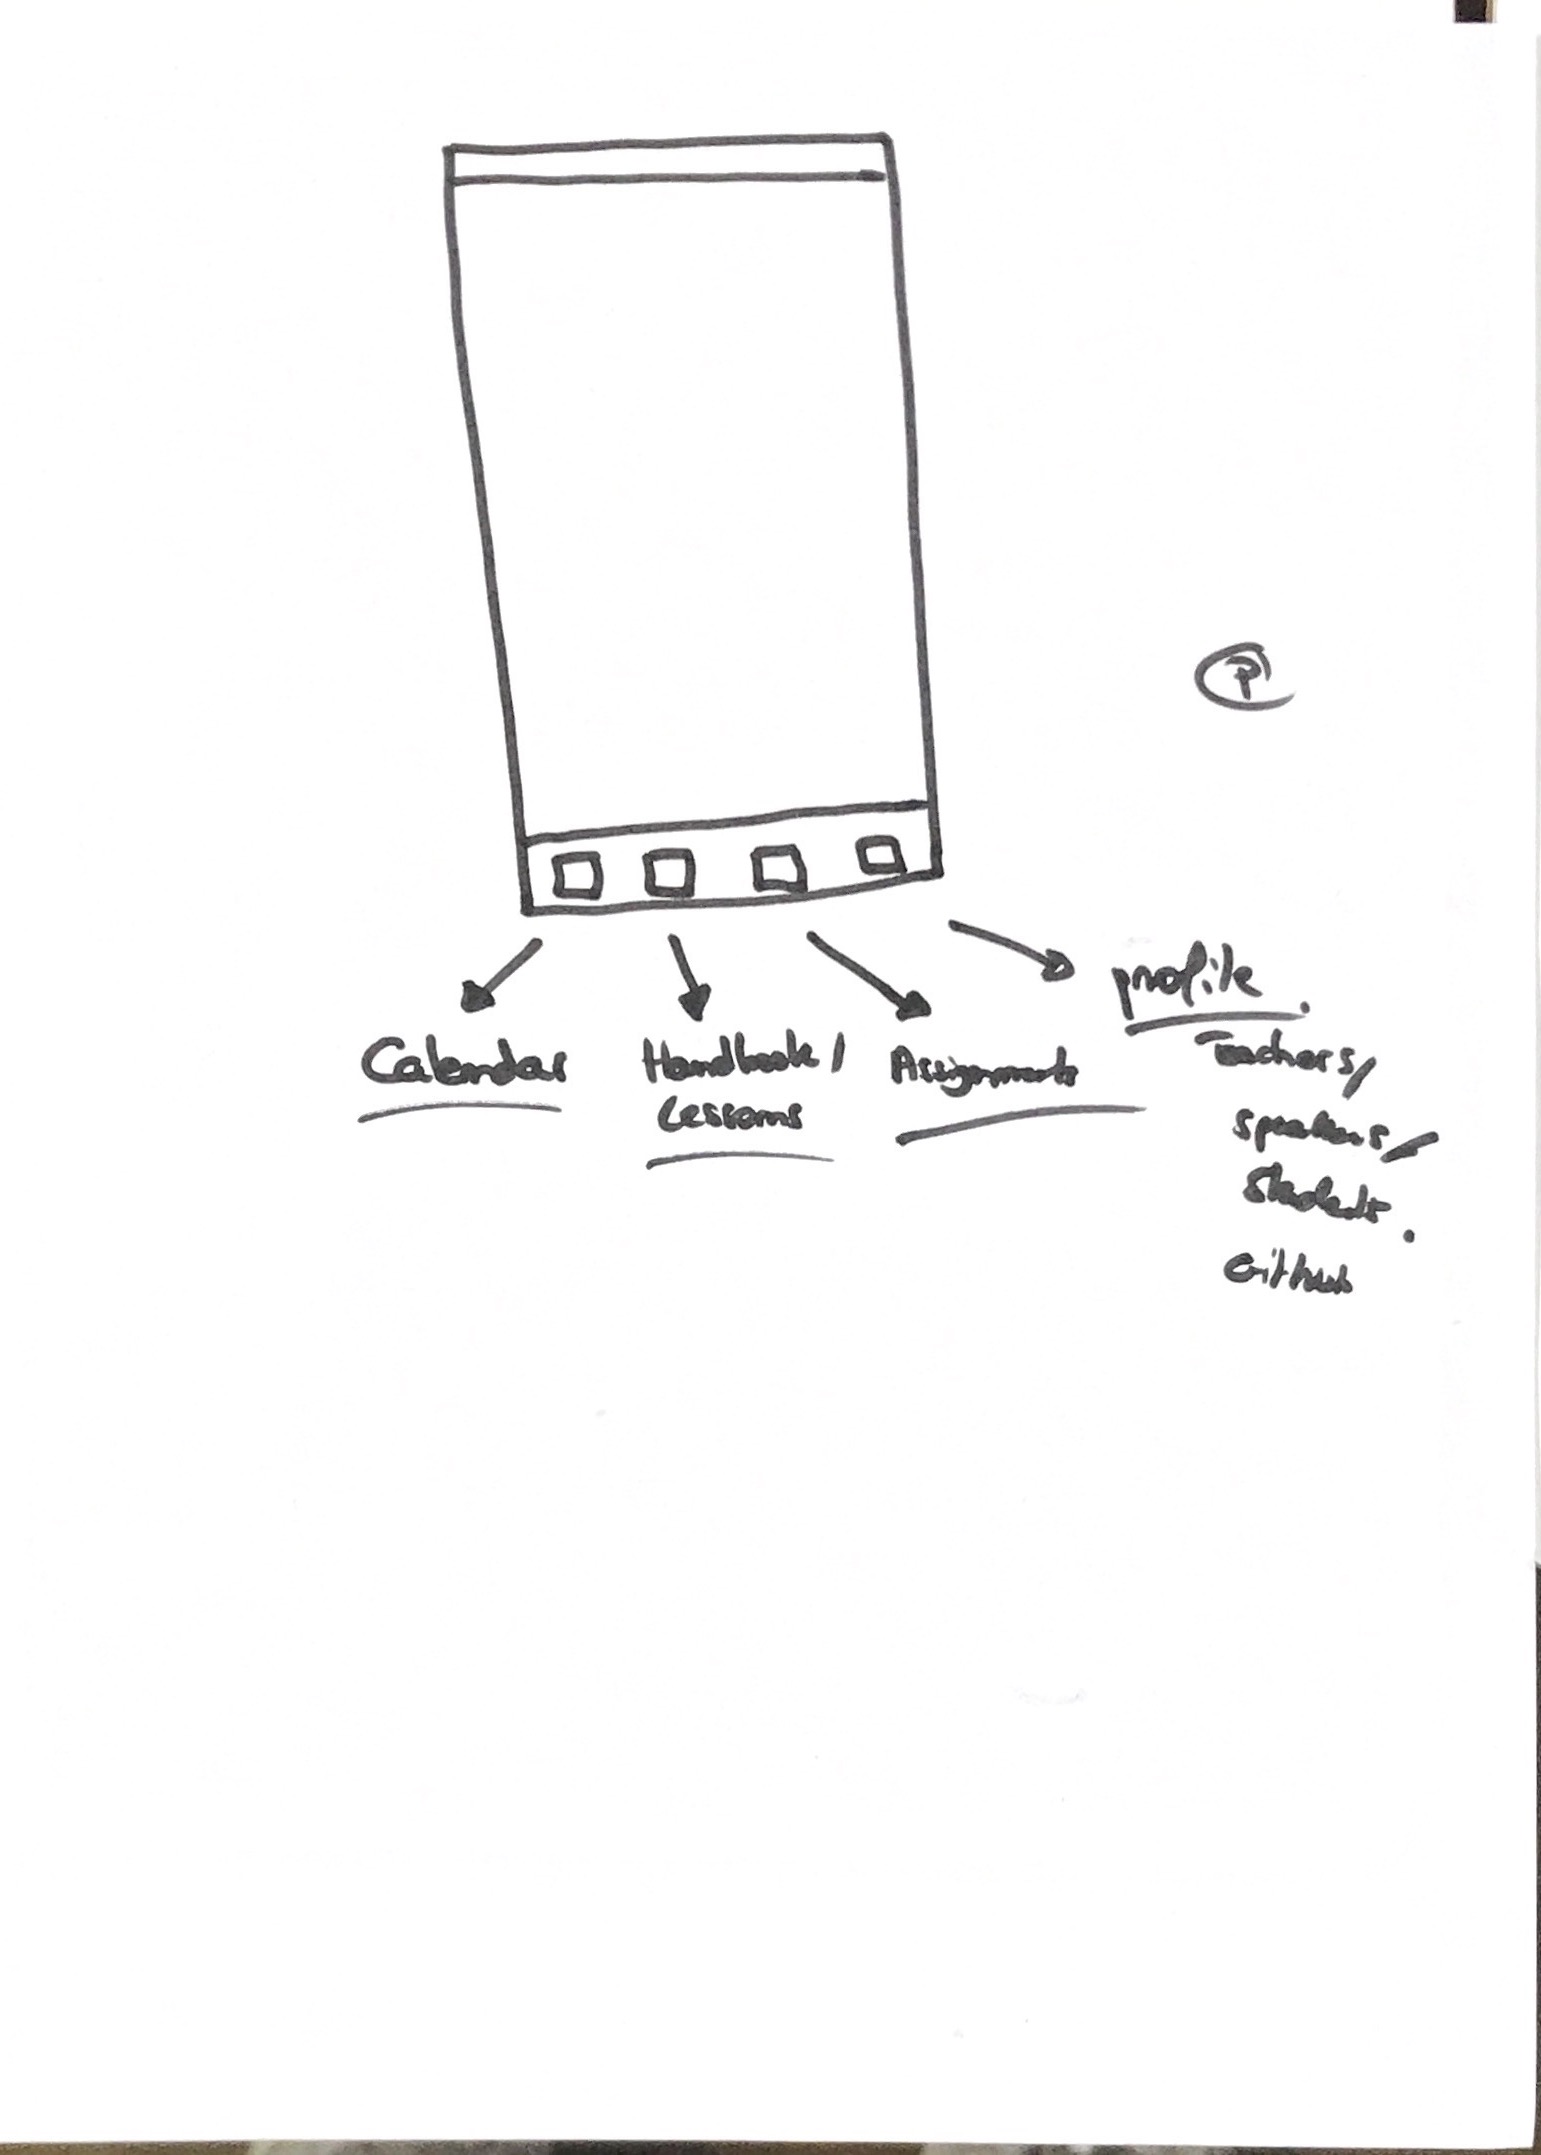 P
profile.
Calendar
Handbook/
Lessons
Assignments
Teachers/
speakers/
Students.
Github